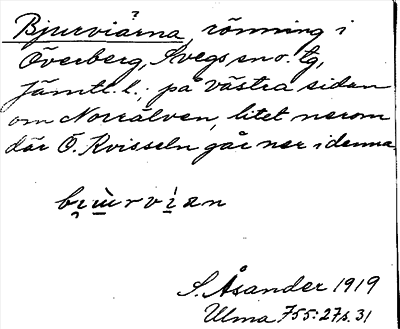 Bjurviärna, rönning i
Överberg, Svegs sn o. tg,
Jämtl. l.; på västra sidan
om Norrälven, litet nerom
där Ö. Kvisseln går ner i denna.
S. Åsander 1919
Ulma 755:27 s. 31